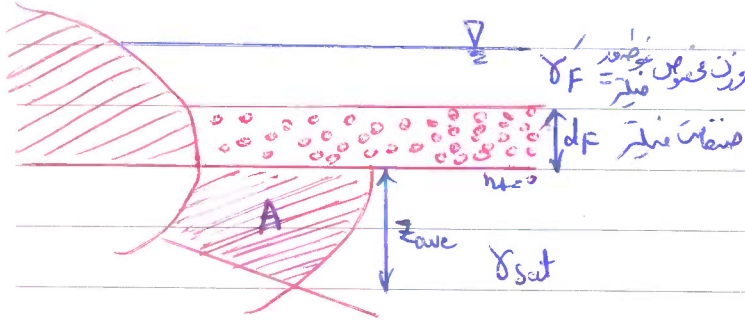 وزن مخصوص غوطه‌ور فیلتر = γ'F
ضخامت فیلتر dF
ht=0
A
Zave
γsat